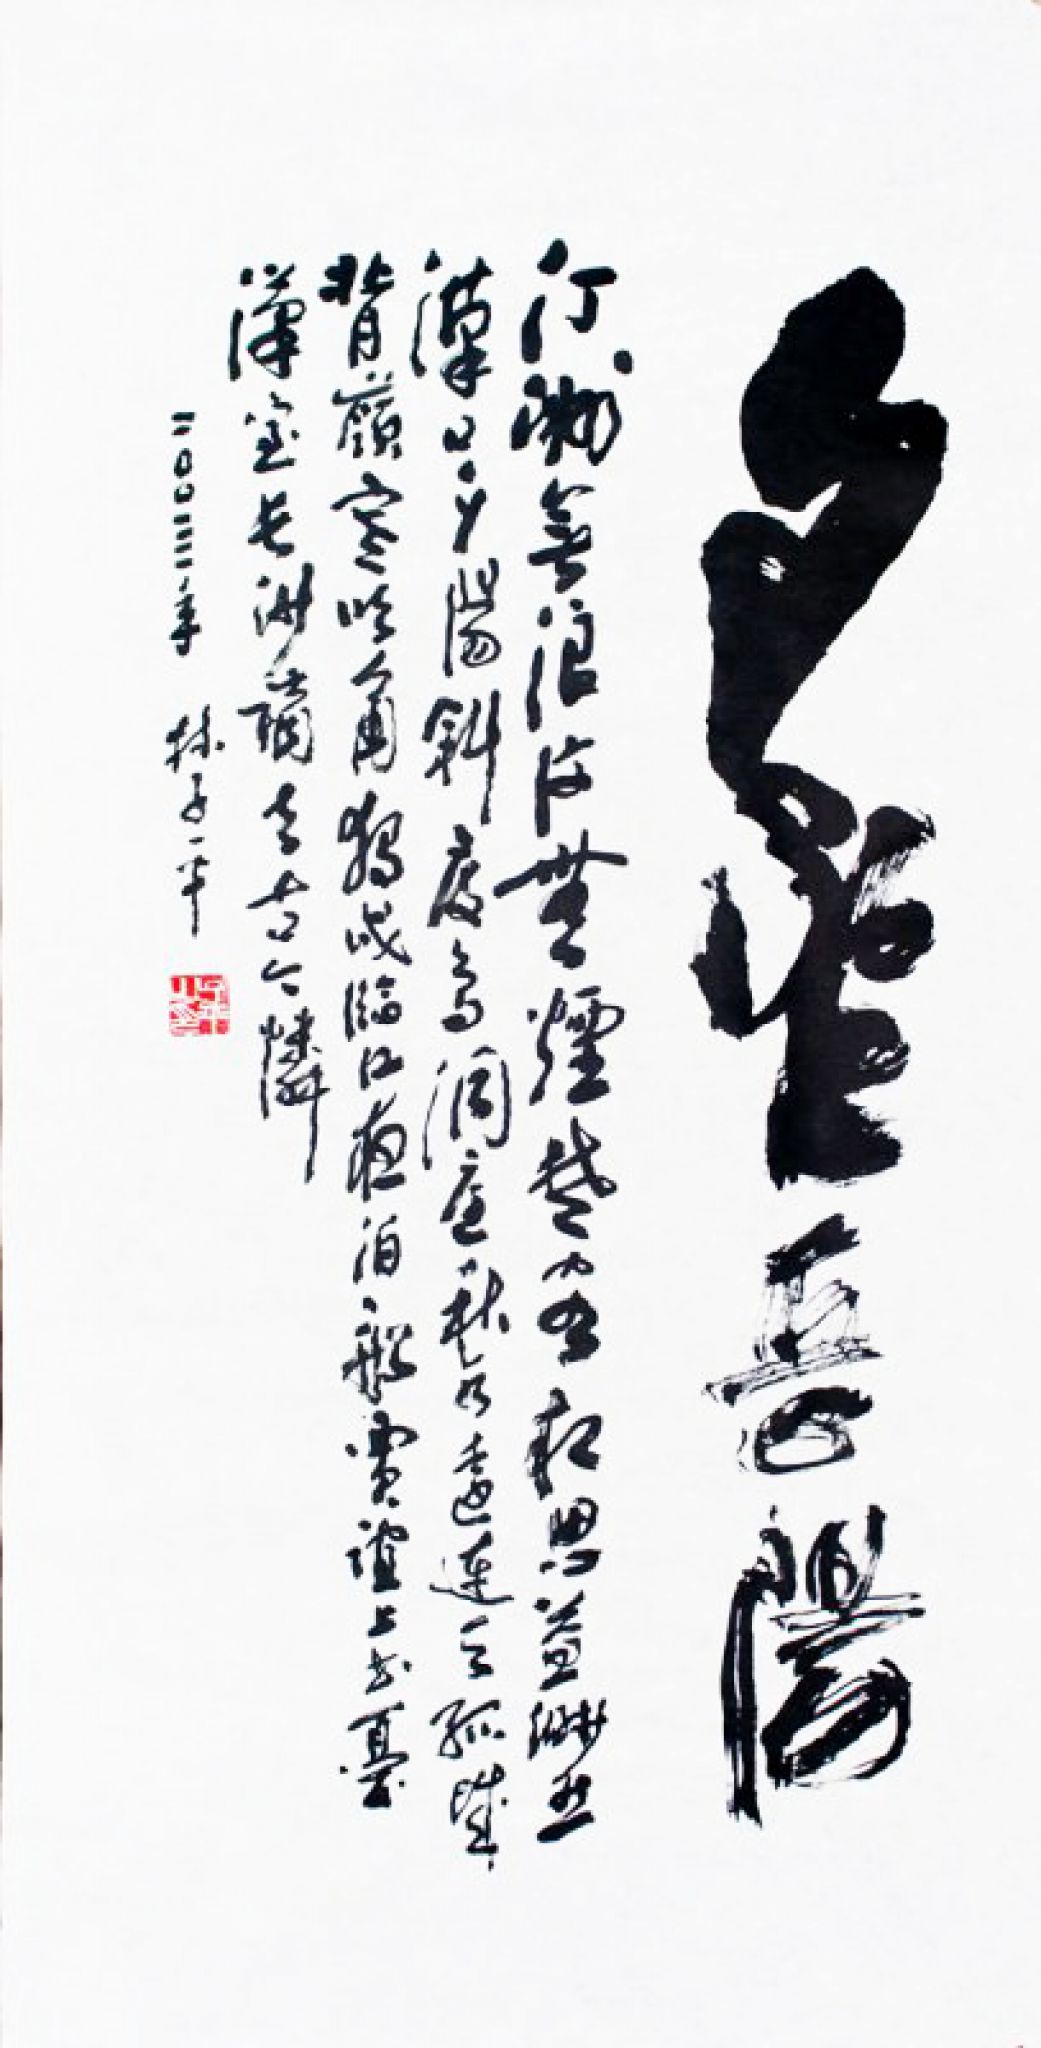 夕望岳陽
汀洲無浪復無煙楚客相思益渺然
漢口夕陽斜度鳥洞庭秋水遠連天孤城
背嶺寒吹角獨戍臨江夜泊船賈誼上書憂
漢室長沙謫去古今憐
二〇〇三年 林子平